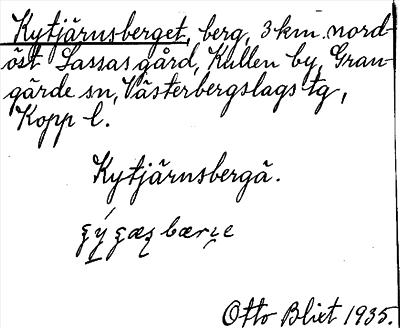 Kytjärnsberget, berg, 3 km nord-
öst Lassas gård, Kullen by, Gran-
gärde sn, Västerbergslags tg,
Kopp l.
Kytjärnsbergä.
Otto Blixt 1935.